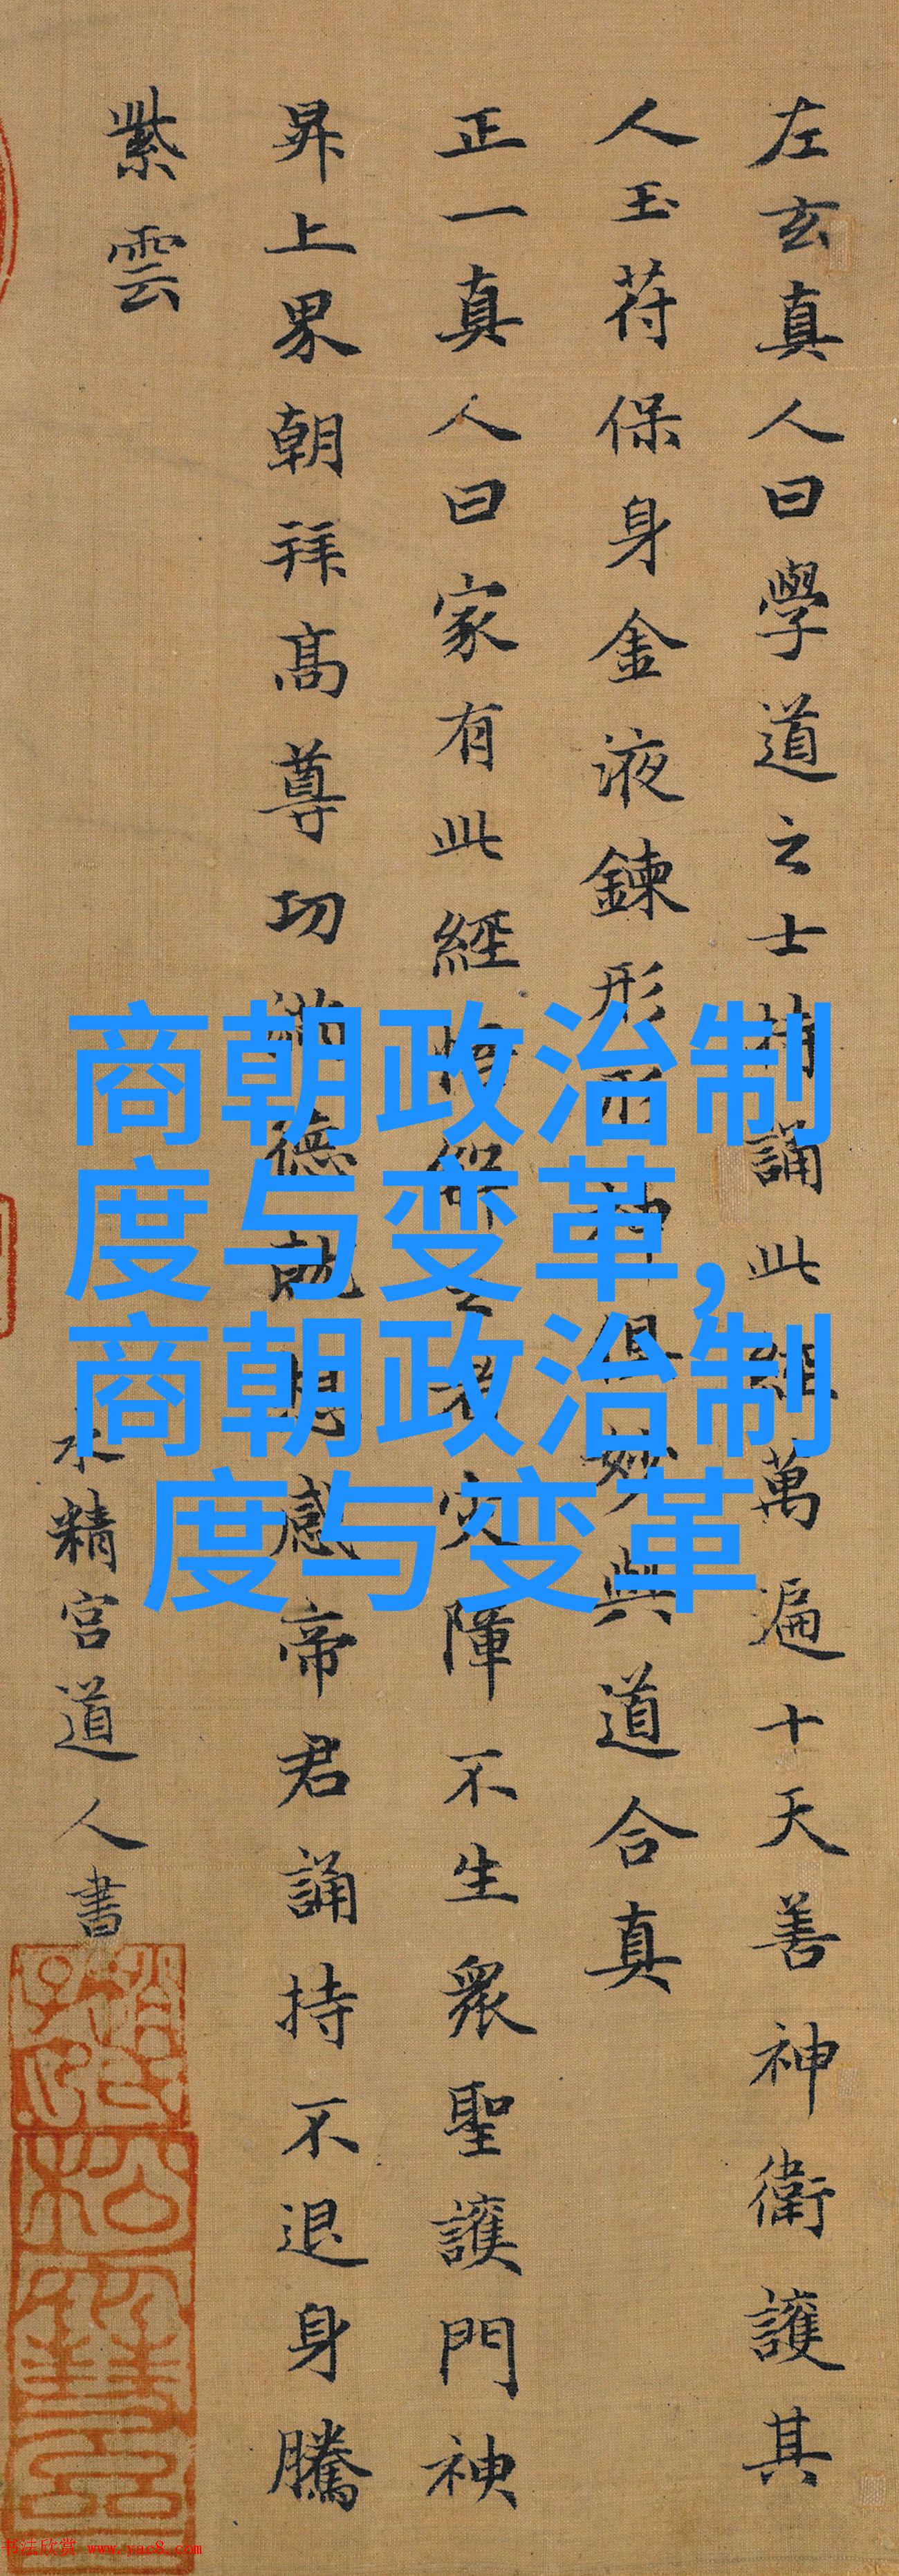 左玄真人曰學道之士持誦此經萬遍十天善神衛護其
人玉符保身金液鍊形形神俱妙與道合真
正一真人曰家有此經悟解之者灾障不生衆聖護門神
昇上界朝拜高尊功滿德就相感帝君誦持不退身騰
紫雲
水精宮道人書
商朝政治制
度与变革,
商朝政治制
度与变革
书法欣赏 www.yac8.com